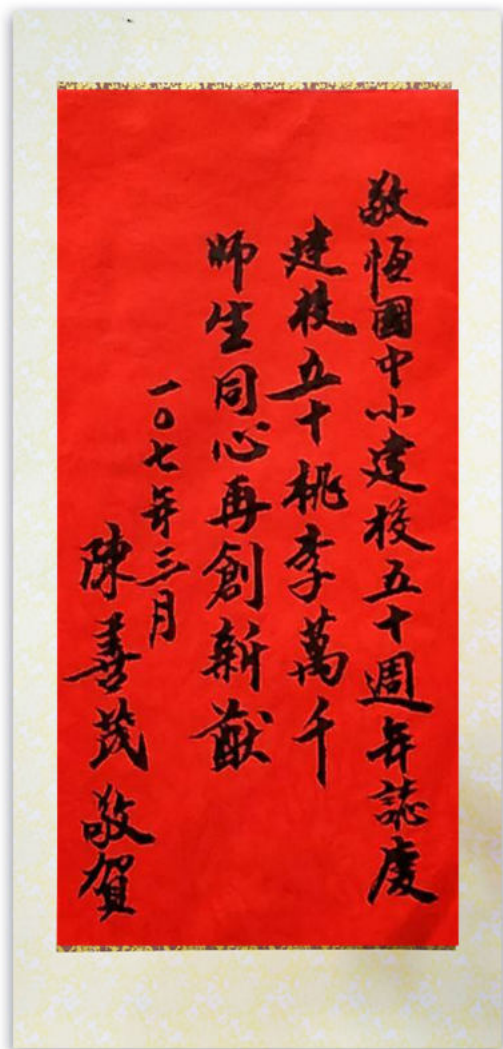 敬恆國中小建校五十週年誌慶
建校五十桃李萬千
師生同心再創新猷
一0七年三月
陳善茂敬賀